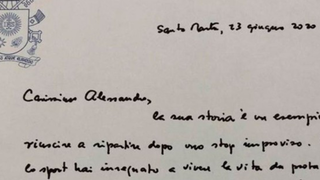 Santa Marta, 23 giugno 2020
Carissimo Alessandro,
la sua storia è un esempio
riuscire a ripartire dopo uno stop improvviso.
lo sport hai insegnato a vivere la vita da prota